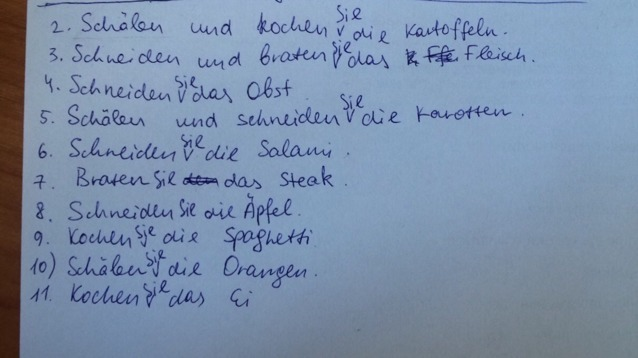 2. Schälen und kochen Sie die Kartoffeln.
3. Schneiden und braten Sie das Fleisch.
4. Schneiden Sie das Obst
5. Schälen und schneiden Sie die Karotten.
6. Schneiden Sie die Salami.
7. Braten Sie das Steak.
8. Schneiden Sie die Äpfel.
9. Kochen Sie die Spaghetti
10) Schälen Sie die Orangen.
11. Kochen Sie das Ei